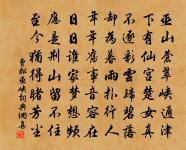 巫山苍翠峡通津
下有仙宫楚女真
不逐彩云归碧落
却为暮雨扑行人
年年旧事音容在
日日谁家梦想频
应是荆山留不住
至今犹得睹芳尘
曹松巫峡词典网录